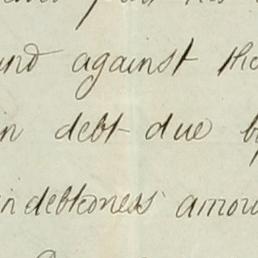 and against the
in debt due by
indebtedness amou